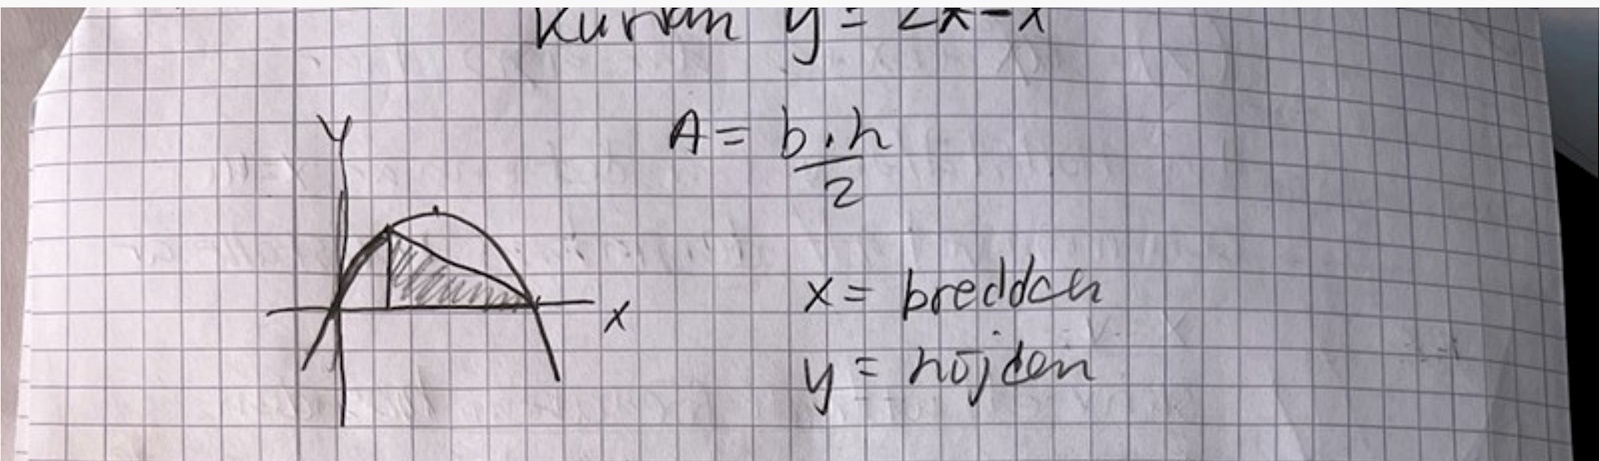 Kurvan y = 2x-x
A = b·h
2
y
x
x = bredden
y = höjden